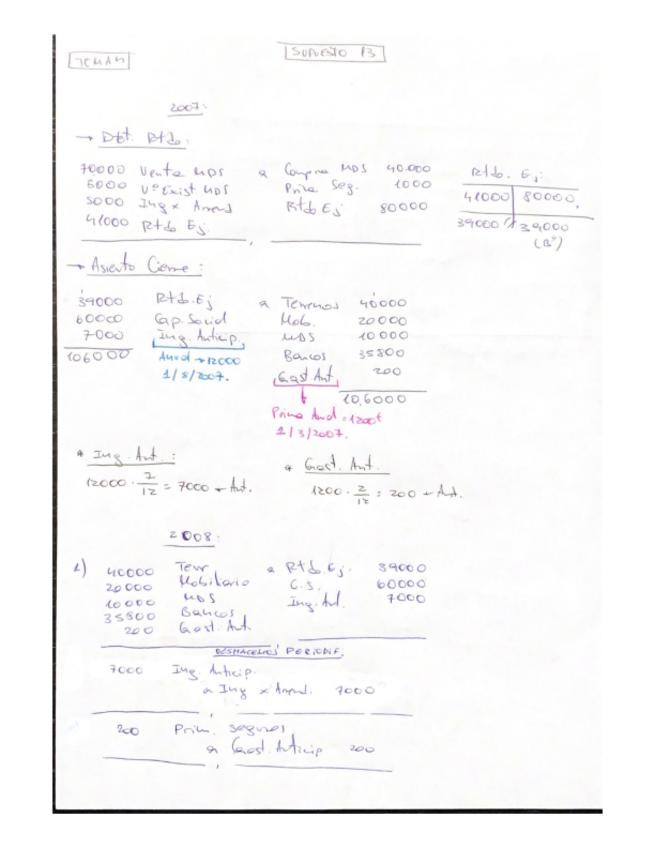 TEMA 5
SUPUESTO 13
2007:
→ Det. Rtdo:
70000 Venta MDS a Compra MDS 40.000
6000 Vº Exist MDS Prima Seg. 1000
5000 Ing x Arrend Rtdo Ej 80000
41000 Rtdo Ej.
Rtdo. Ej.
41000 80000
39000 39000
(Bº)
→ Asiento Cierre:
39000 Rtdo. Ej a Terrenos 40000
60000 Cap. Social Mob. 20000
7000 Ing. Anticip. MDS 10000
106000 Anual → 12000 Bancos 35800
1/8/2007. Gast Ant. 200
10,6000
Prima Anual = 1200€
1/3/2007.
* Ing. Ant.: * Gast. Ant.
12000 · 7/12 = 7000 → Ant. 1200 · 2/12 = 200 → Ant.
2008:
1) 40000 Terr a Rtdo Ej. 39000
20000 Mobiliario C.S. 60000
10000 MDS Ing. Ant. 7000
35800 Bancos
200 Gast. Ant.
PERIODIF.
7000 Ing. Anticip.
a Ing x Arrend. 7000
200 Prim. seguros
a Gast. Anticip 200